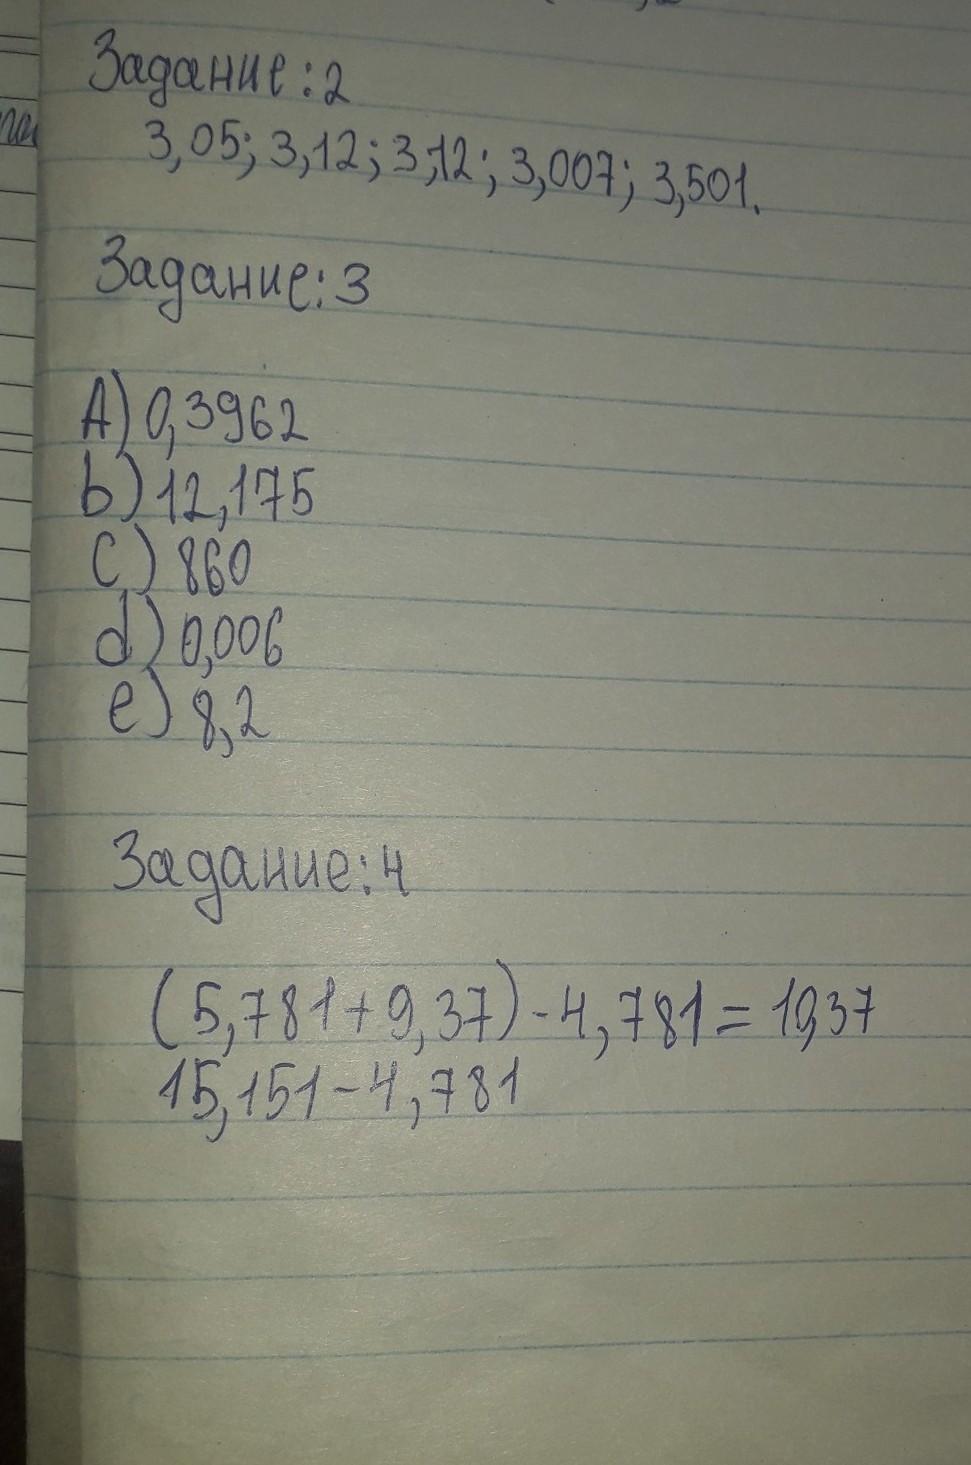 Задание:2
3,05; 3,12; 3,12; 3,007; 3,501.
Задание:3
A) 0,3962
b) 12,175
C) 860
d) 0,006
e) 8,2
Задание:4
(5,781+9,37)-4,781=10,37
15,151-4,781